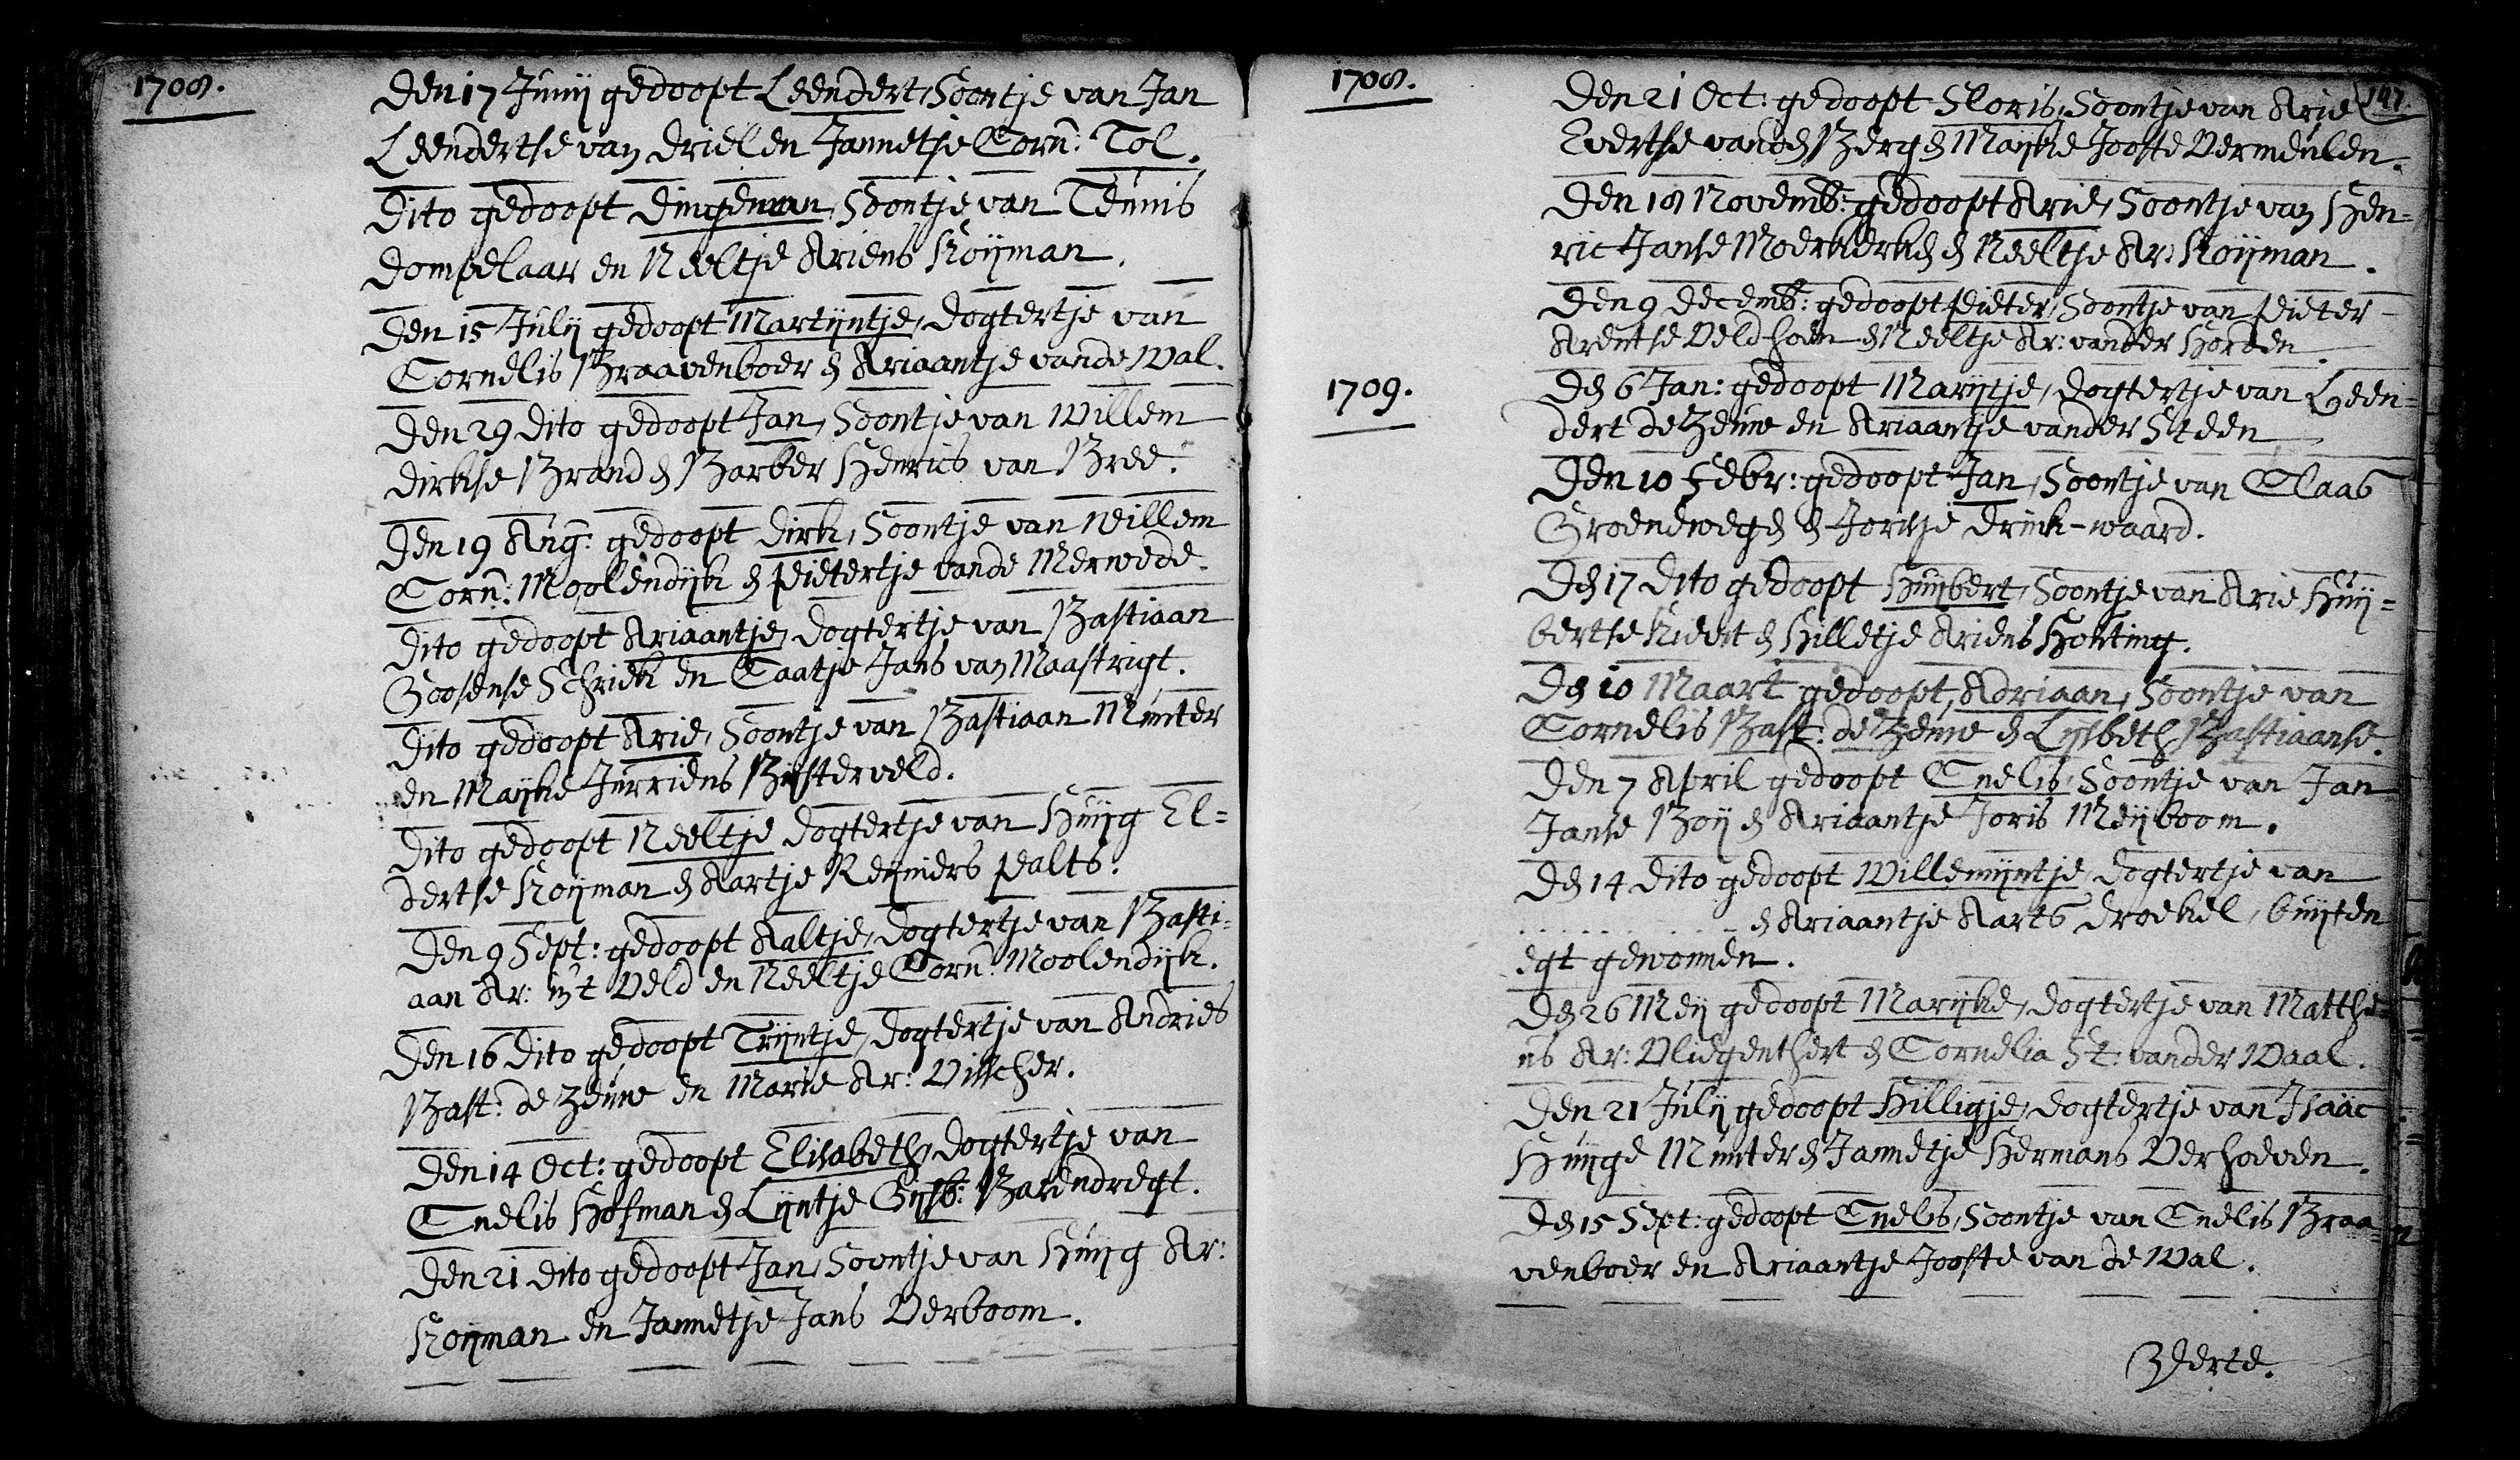 1708.
Den 17 Junij gedoopt Leendert, Soontje van Jan
Leendertse van Driel en Jannetje Corn: Tol.
Dito gedoopt Dingeman, Soontje van Teunis
Dompelaar en Neeltje Ariens Kooijman.
Den 15 Julij gedoopt Martijntje, dogtertje van
Cornelis Braavenboer en Ariaantje vande Wal.
Den 29 Dito gedoopt Jan, Soontje van Willem
Dirkse Brand en Barber Henrics van Bree.
Den 19 Aug: gedoopt Dirk, Soontje van Willem
Corn: Moolendijk en Pietertje vande Merwede.
Dito gedoopt Ariaantje, dogtertje van Bastiaan
Goosense Schriek en Caatje Jans van Maastrigt.
Dito gedoopt Arie, Soontje van Bastiaan Munter
en Maijke Jurriens Bijsterveld.
Dito gedoopt Neeltje dogtertje van Huijg El=
dertse Kooijman en Aartje Reijniers Palts.
Den 9 Sept: gedoopt Aaltje, dogtertje van Basti=
aan Ar: in't Veld en Neeltje Corn: Moolendijk.
Den 16 Dito gedoopt Trijntje, dogtertje van Andries
Bast: de Zeeuw en Marie Ar: Visscher.
Den 14 Oct: gedoopt Elisabeth, dogtertje van
Cnelis Hofman en Lijntje Gijsb: Barendregt.
Den 21 Dito gedoopt Jan, Soontje van Huijg Ar:
Kooijman en Jannetje Jans Verboom.
1708.
147.
Den 21 Oct: gedoopt Floris, Soontje van Arie
Evertse vanden Berg en Maijke Jooste Vermeulen.
Den 18 Novemb: gedoopt Arie, Soontje van Hen=
ric Janse Moerkerken en Neeltje Ar: Kooijman.
Den 9 Decemb: gedoopt Pieter, Soontje van Pieter
Arentse Veldhoen en Neeltje Ar: vander Horden.
1709.
Den 6 Jan: gedoopt Marijtje, dogtertje van Leen=
dert de Zeeuw en Ariaantje vander Steen
Den 10 Febr: gedoopt Jan, Soontje van Claas
Groenewegen en Jorisje Drink-waard.
Den 17 Dito gedoopt Huijbert, Soontje van Arie Huij=
bertse Kievit en Hilletje Ariens Konting.
Den 10 Maart gedoopt, Adriaan, Soontje van
Cornelis Bast: de Zeeuw en Lijsbeth Bastiaanse.
Den 7 April gedoopt Cnelis Soontje van Jan
Janse Booij en Ariaantje Joris Meijboom.
Den 14 Dito gedoopt Willemijntje dogtertje van
............ en Ariaantje Aarts Droekel, buijten
egt gewonnen.
Den 26 Meij gedoopt Marijke, dogtertje van Matthe=
us Ar: Vliegenthert en Cornelia St: vander Waal.
Den 21 Julij gedoopt Hilligje, dogtertje van Isaäc
Huijge Munter en Jannetje Hermans Verhoeven.
Den 15 Sept: gedoopt Cnelis, Soontje van Cnelis Braa=
venboer en Ariaantje Jooste van de Wal.